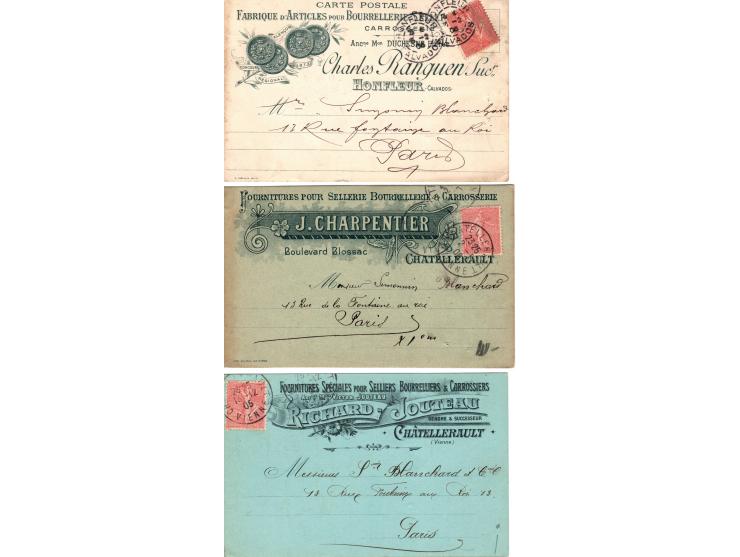 CARTE POSTALE
FABRIQUE D'ARTICLES POUR BOURRELLERIE
CARROS
ANCNE MON DUCHESNE
Charles Ranguen Succr
HONFLEUR (CALVADOS)
Mr Simonin Blanchard
13 Rue fontaine au Roi
Paris
FOURNITURES POUR SELLERIE BOURRELLERIE & CARROSSERIE
J. CHARPENTIER
Boulevard Blossac
CHATELLERAULT
Monsieur Simonnin Blanchard
13 Rue de la Fontaine au roi
Paris
FOURNITURES SPÉCIALES POUR SELLIERS BOURRELIERS & CARROSSIERS
ANCNE MON VICTOR JOUTEAU
RICHARD-JOUTEAU
GENDRE & SUCCESSEUR
CHÂTELLERAULT
(Vienne)
Messieurs Sin Blanchard et Cie
13 Rue Fontaine au Roi 13
Paris